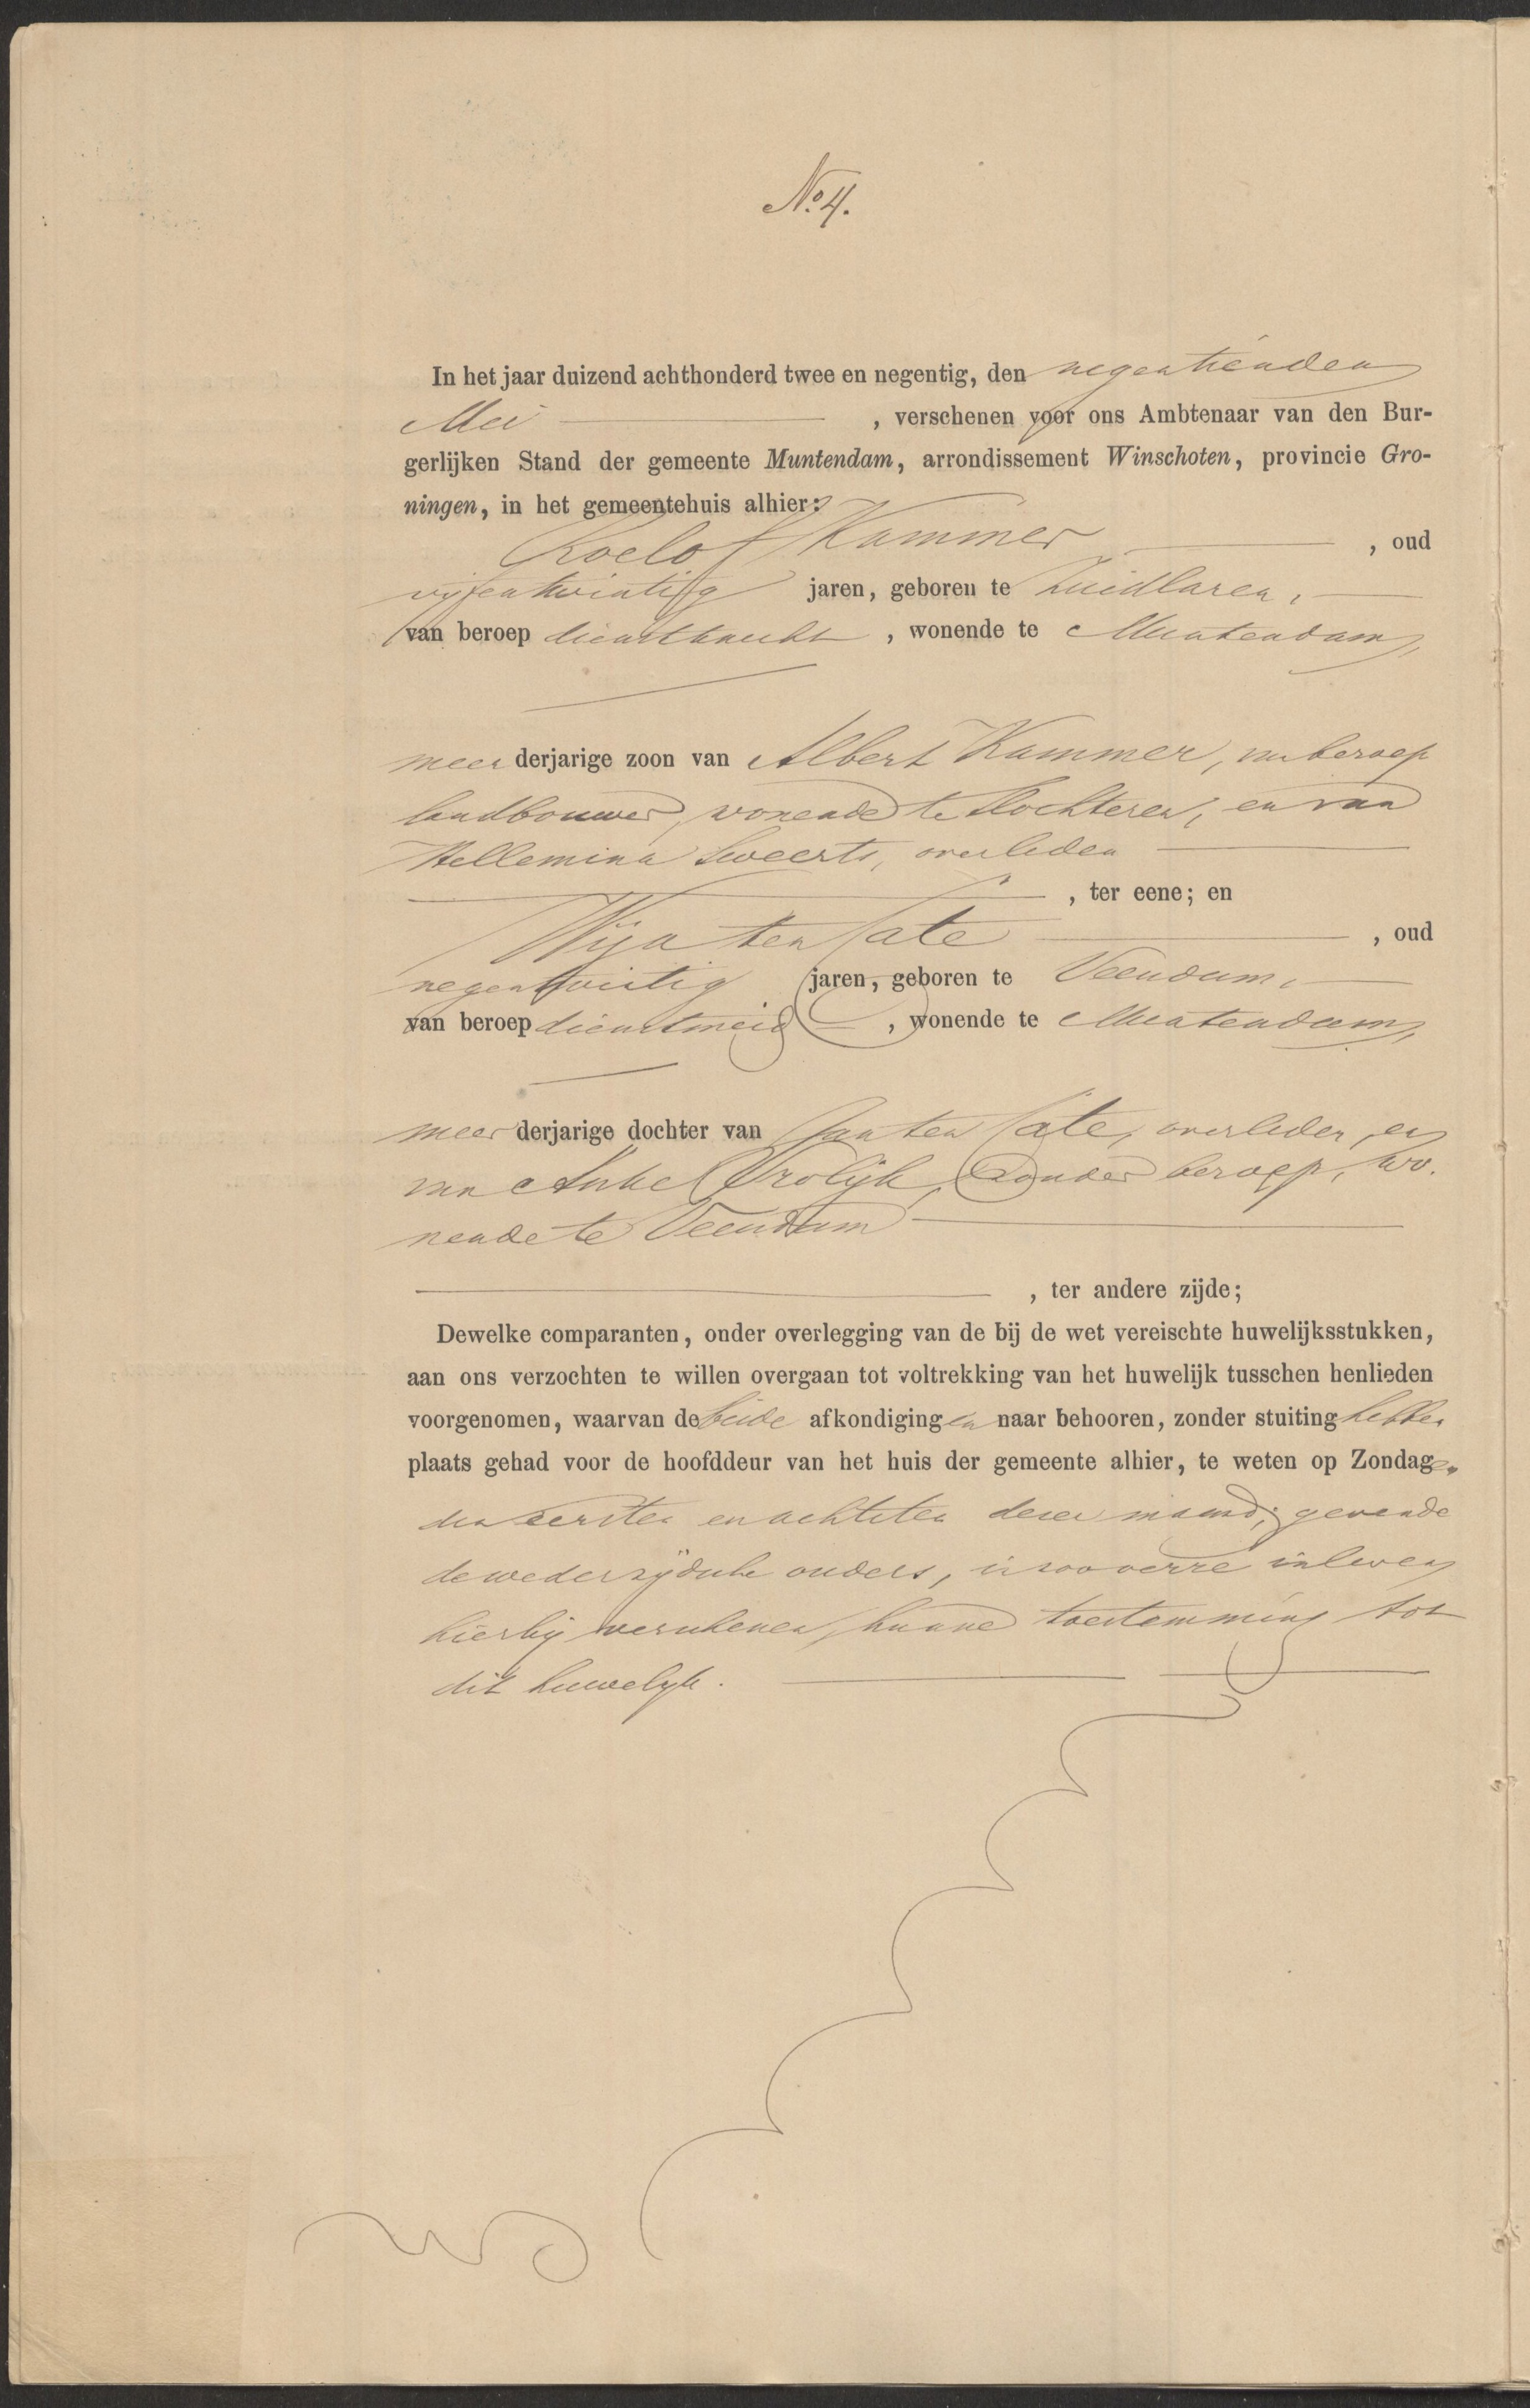 No. 4.
In het jaar duizend achthonderd twee en negentig, den negentienden
Mei , verschenen voor ons Ambtenaar van den Bur-
gerlijken Stand der gemeente Muntendam, arrondissement Winschoten, provincie Gro-
ningen, in het gemeentehuis alhier:
Roelof Kammer , oud
vijfentwintig jaren, geboren te Zuidlaren,
van beroep dienstknecht , wonende te Muntendam,
meerderjarige zoon van Albert Kammer, van beroep
landbouwer, wonende te Slochteren, en van
Hellemina Sweerts, overleden
, ter eene; en
ten Cate , oud
negentwintig jaren, geboren te Veendam,
van beroep dienstmeid , wonende te Muntendam,
meerderjarige dochter van Jan ten Cate, overleden, en
van Anke Vrolijk, zonder beroep, wo-
nende te Veendam
, ter andere zijde;
Dewelke comparanten, onder overlegging van de bij de wet vereischte huwelijksstukken,
aan ons verzochten te willen overgaan tot voltrekking van het huwelijk tusschen henlieden
voorgenomen, waarvan de beide afkondigingen naar behooren, zonder stuiting hebben
plaats gehad voor de hoofddeur van het huis der gemeente alhier, te weten op Zondagen
den eersten en achtsten dezer maand; gevende
de wederzijdsche ouders, in zooverre in leven
hierbij verschenen, hunne toestemming tot
dit huwelijk.